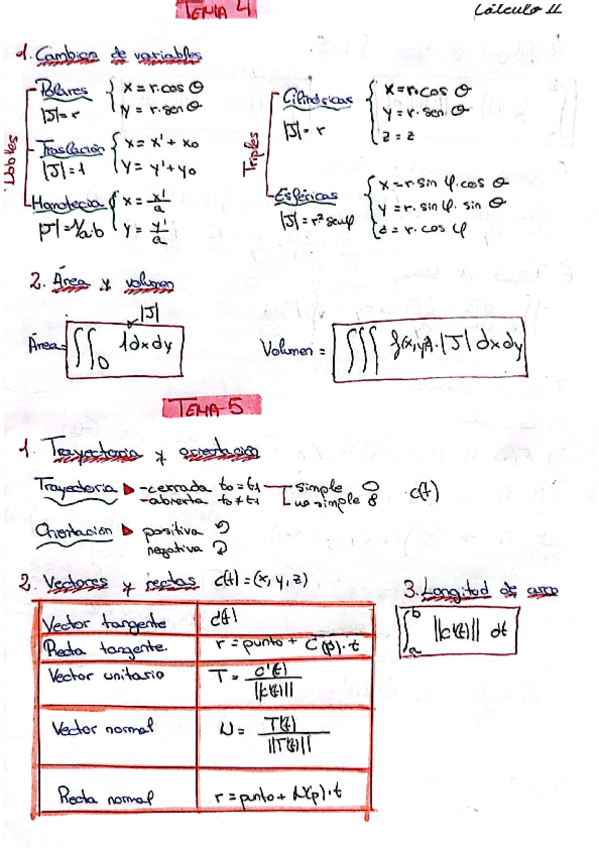 TEMA 4
Cálculo II
1. Cambios de variables
Dobles
Polares { x = r·cos θ
|J| = r { y = r·sen θ
Traslación { x = x' + x₀
|J| = 1 { y = y' + y₀
Homotecia { x = x'/a
|J| = 1/a·b { y = y'/a
Triples
Cilíndricas { x = r·cos θ
|J| = r { y = r·sen θ
z = z
Esféricas { x = r·sin φ·cos θ
|J| = r² sen φ { y = r·sin φ·sin θ
z = r·cos φ
2. Área y volumen
|J|
Área = ∫∫_D 1 dx dy
Volumen = ∫∫∫ f(x,y)·|J| dx dy
TEMA 5
1. Trayectoria y orientación
Trayectoria ▶ - cerrada t₀ = t₁ simple O c(t)
- abierta t₀ ≠ t₁ no simple 8
Orientación ▶ positiva ↺
negativa ↻
2. Vectores y rectas c(t) = (x, y, z)
Vector tangente c'(t)
Recta tangente. r = punto + c'(p)·t
Vector unitario T = c'(t) / ||c'(t)||
Vector normal N = T'(t) / ||T'(t)||
Recta normal r = punto + N(p)·t
3. Longitud de arco
∫_a^b ||c'(t)|| dt